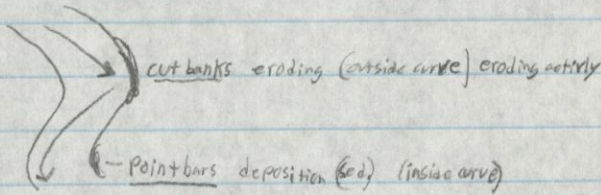 cut banks eroding (outside curve) eroding activly
- point bars deposition (sed) (inside curve)